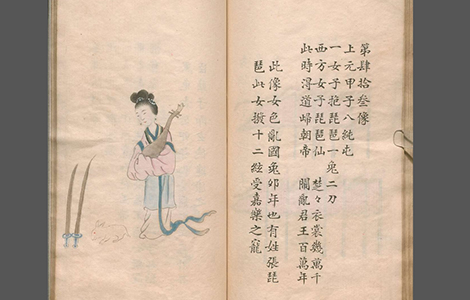 第肆拾叁像
上元甲子八純屯
一女子抱琵琶一兔二刀
西方女子琵琶仙　楚々衣裳幾萬千
此時浔道歸朝帝　鬧亂君王百萬年
此像女色亂國兔卯年也有姓張琵
琶此女撥十二絃受嘉樂之寵